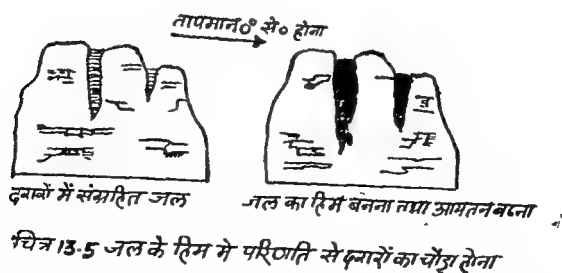 तापमान 0° से० होना
दरारों में संग्रहित जल
जल का हिम बनना तथा आयतन बढना
चित्र 13.5 जल के हिम मे परिणति से दरारों का चौड़ा होना